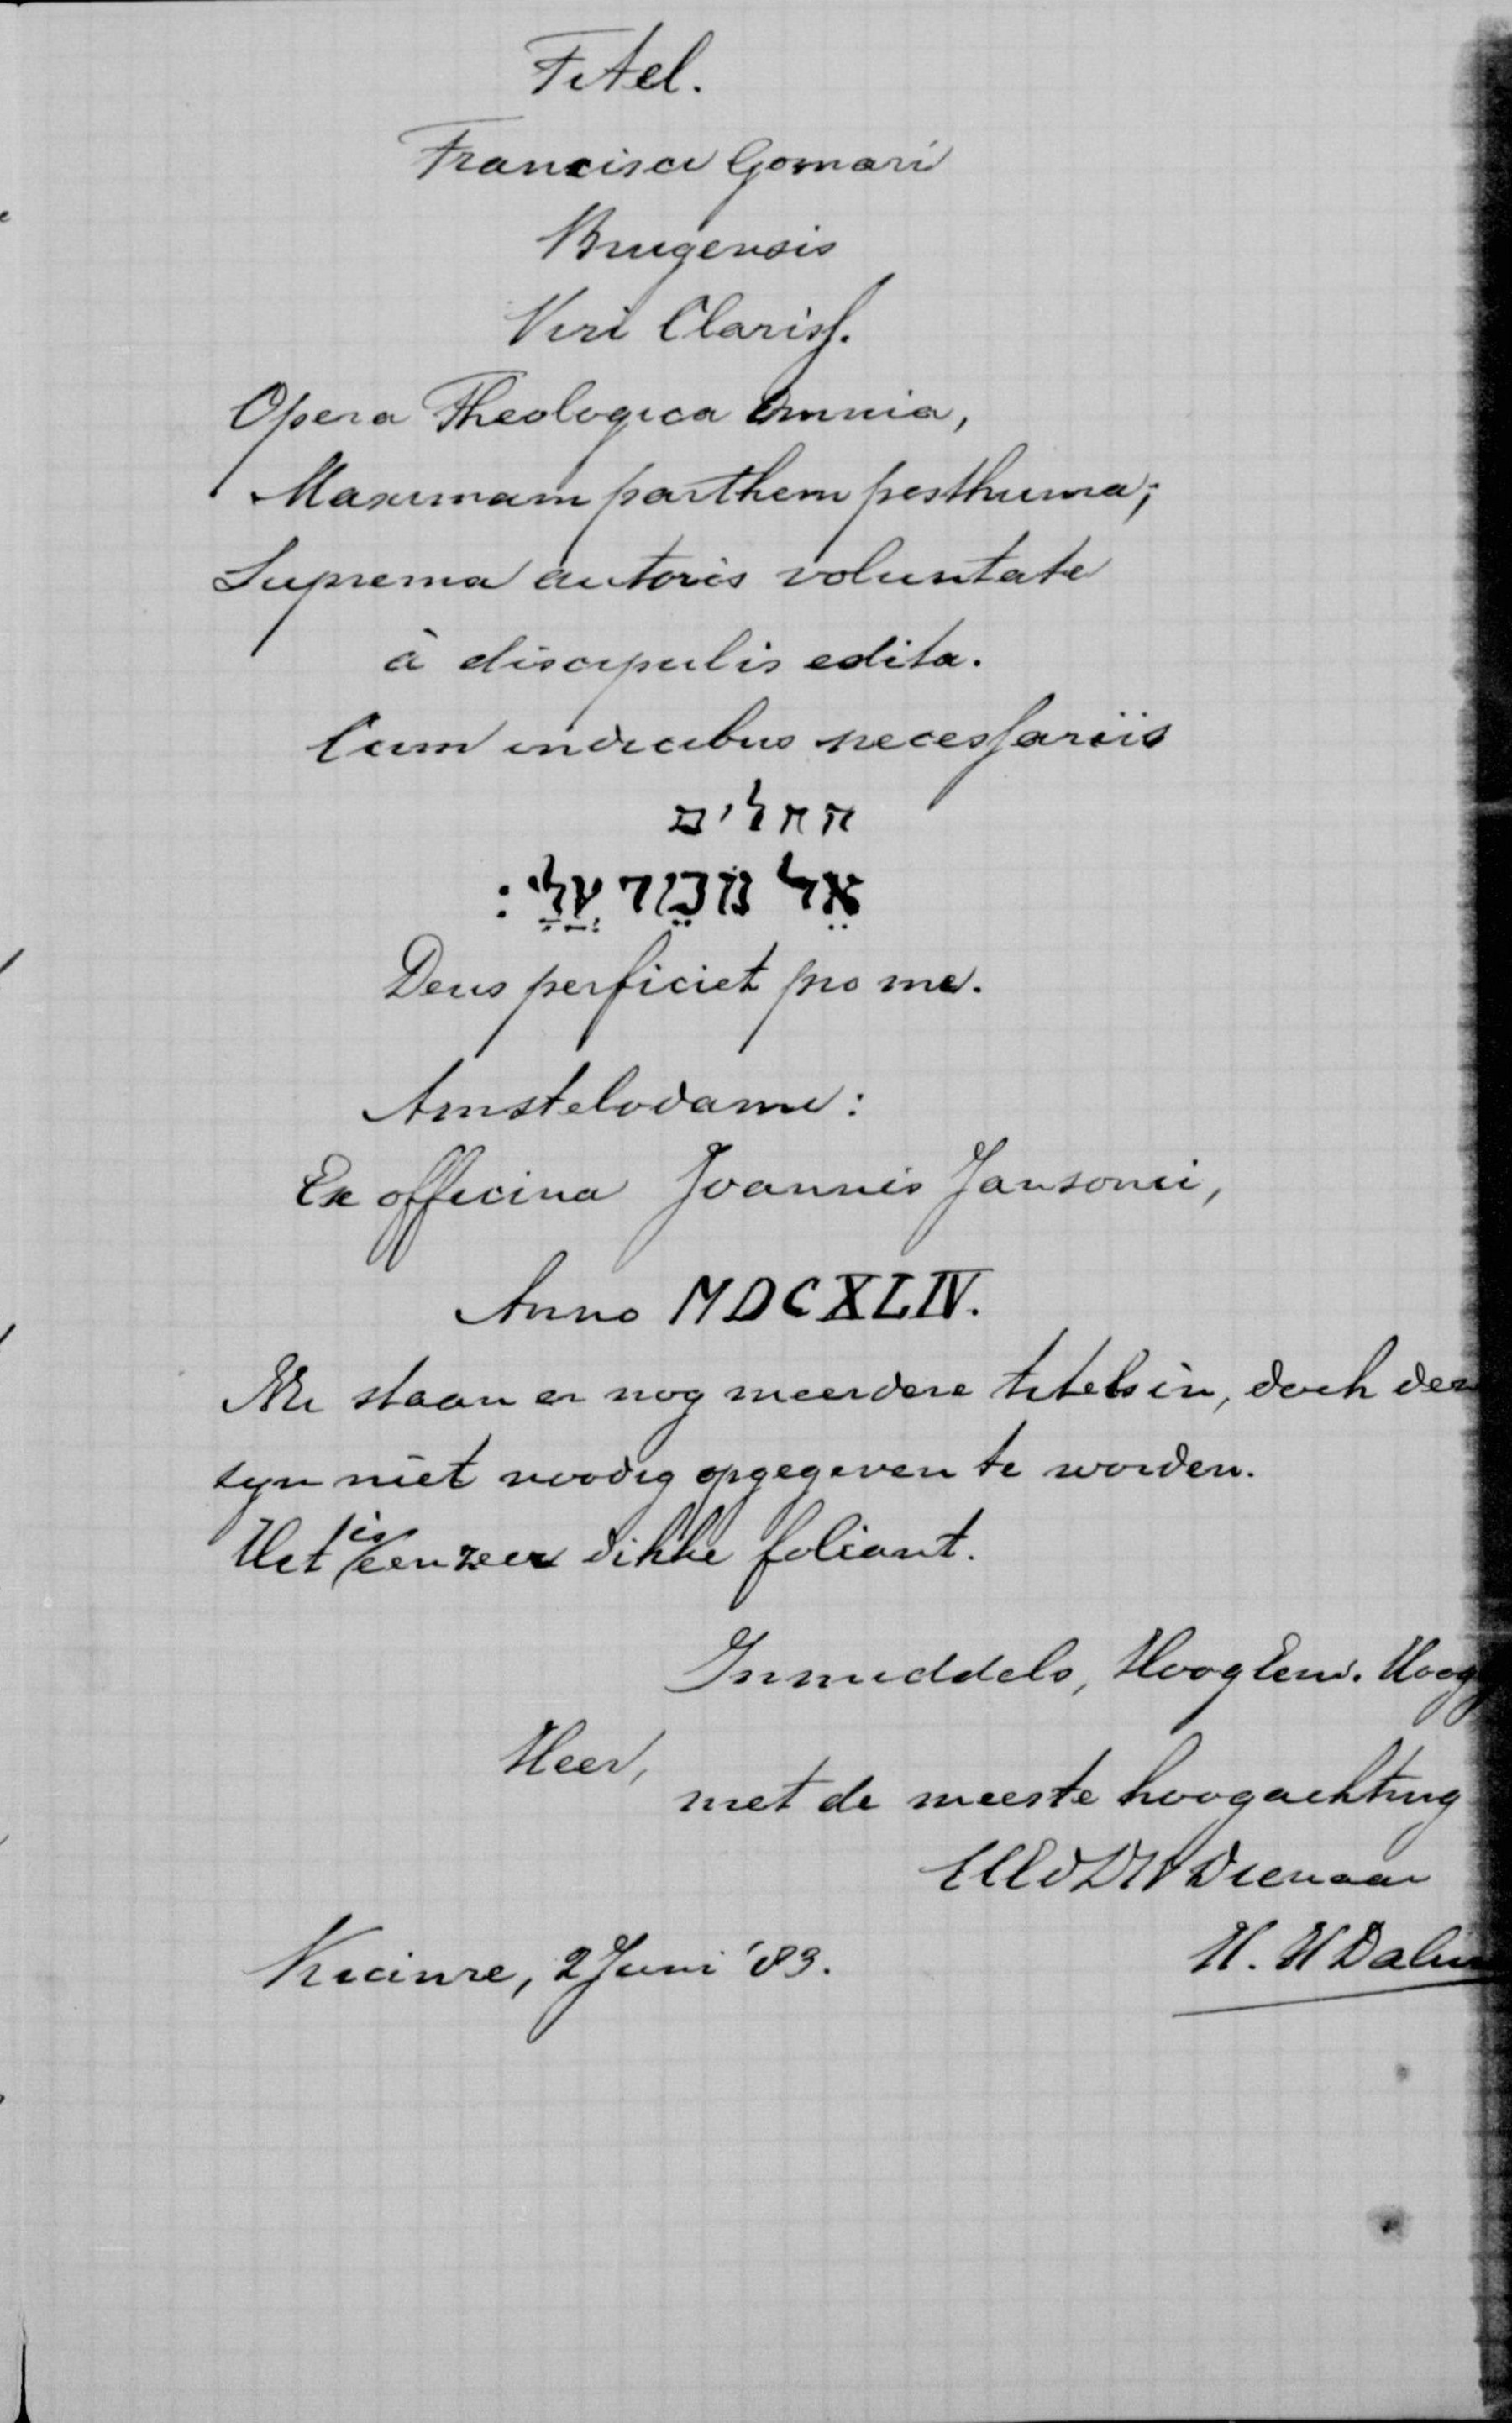 Titel.
Francisci Gomari
Brugensis
Viri Clariss.
Opera Theologica Omnia,
Maximam parthem posthuma;
Suprema autoris voluntate
à discipulis edita.
Cum indicibus necessariis
Deus perficiet pro me.
Amstelodami:
Ex officina Joannis Jansonii,
Anno MDCXLIV.
Nu staan er nog meerdere titels in, doch
zyn niet noodig opgegeven te worden.
Het is een zeer dikke foliant.
Inmiddels, HoogEerw.
Heer,
met de meeste hoogachting
Dienaar
2 Juni '83.